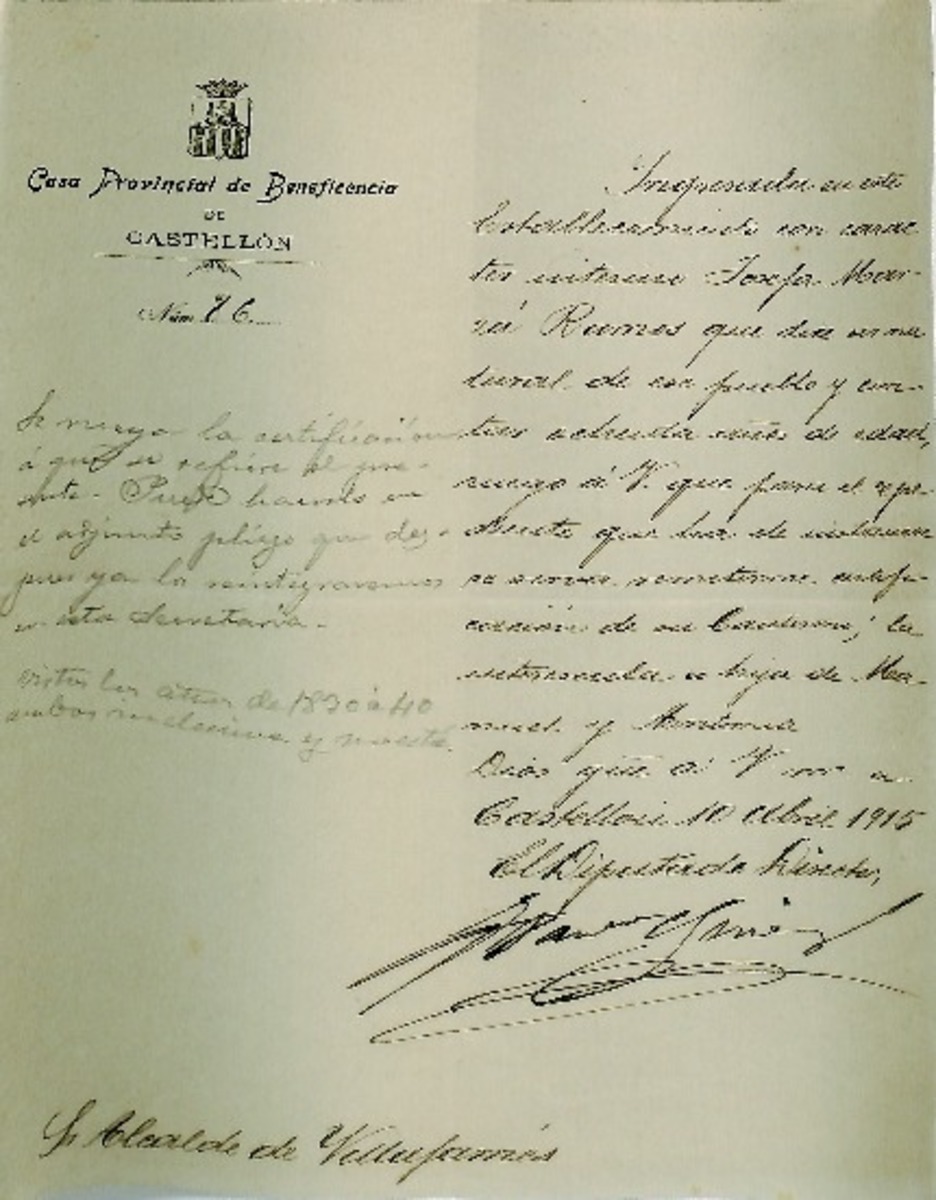 Casa Provincial de Beneficencia
DE
CASTELLÓN
Núm 76
Ingresada en este
Establecimiento con carac
ter interno Josefa Mar-
Ramos que dice ser na
tural de ese pueblo y con-
tar ochenta años de edad,
ruego á V. que para el expe-
diente que ha de instruirse
se sirva remitirme certifi-
cación de su bautismo; la
interesada es hija de Ma-
nuel y Antonia
Dios gue á V m a
Castellón 10 Abril 1915
El Diputado Director,
Se ruega la certificación
á que se refiere el pre-
sente. Puede hacerlo en
el adjunto pliego que des-
pues ya la reintegraremos
en esta Secretaria.
vistos los de 1830 á 40
ambos inclusive y no está
Sr Alcalde de Villafamés